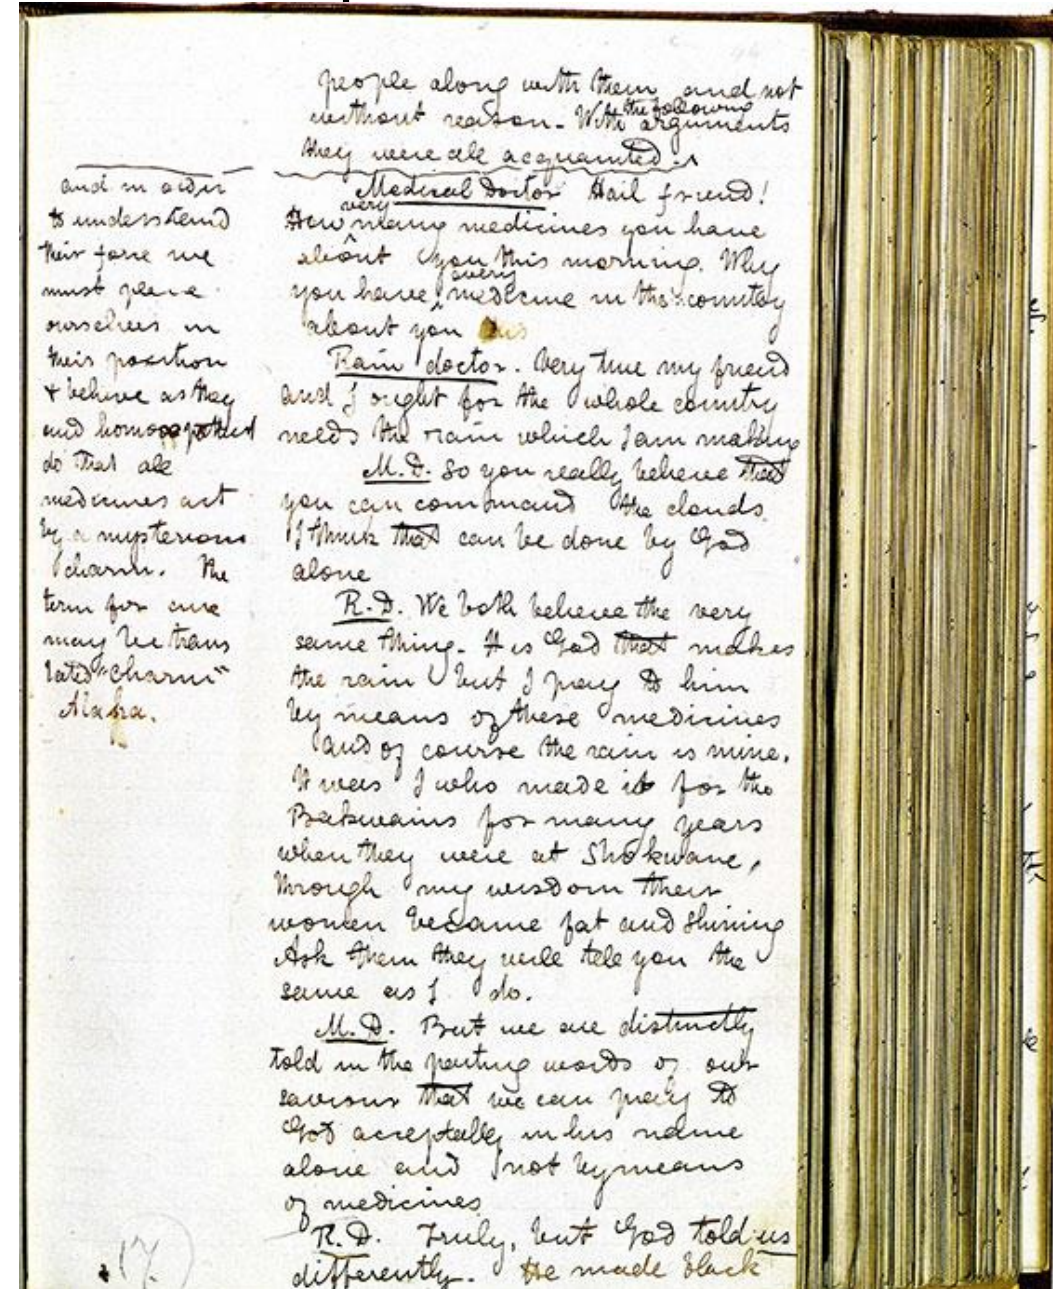 people along with them and not
without reason - With the following arguments
they were all acquainted -
and in order
to understand
their force we
must place
ourselves in
their position
& believe as they
and homoeopathist
do that all
medicines act
by a mysterious
charm. The
term for cure
may be trans
lated "charm"
Alaha.
Medical Doctor Hail friend!
How very many medicines you have
about you this morning. Why
you have every medicine in the country
about you
Rain doctor. Very true my friend
and I ought for the whole country
needs the rain which I am making
M.D. So you really believe that
you can command the clouds
I think that can be done by God
alone
R.D. We both believe the very
same thing - It is God that makes
the rain but I pray to him
by means of these medicines
and of course the rain is mine.
It was I who made it for the
Bakwains for many years
when they were at Shokwane,
through my wisdom their
women became fat and shining
Ask them they will tell you the
same as I do.
M.D. But we are distinctly
told in the parting words of our
saviour that we can pray to
God acceptably in his name
alone and not by means
of medicines
R.D. Truly, but God told us
differently. He made black
17